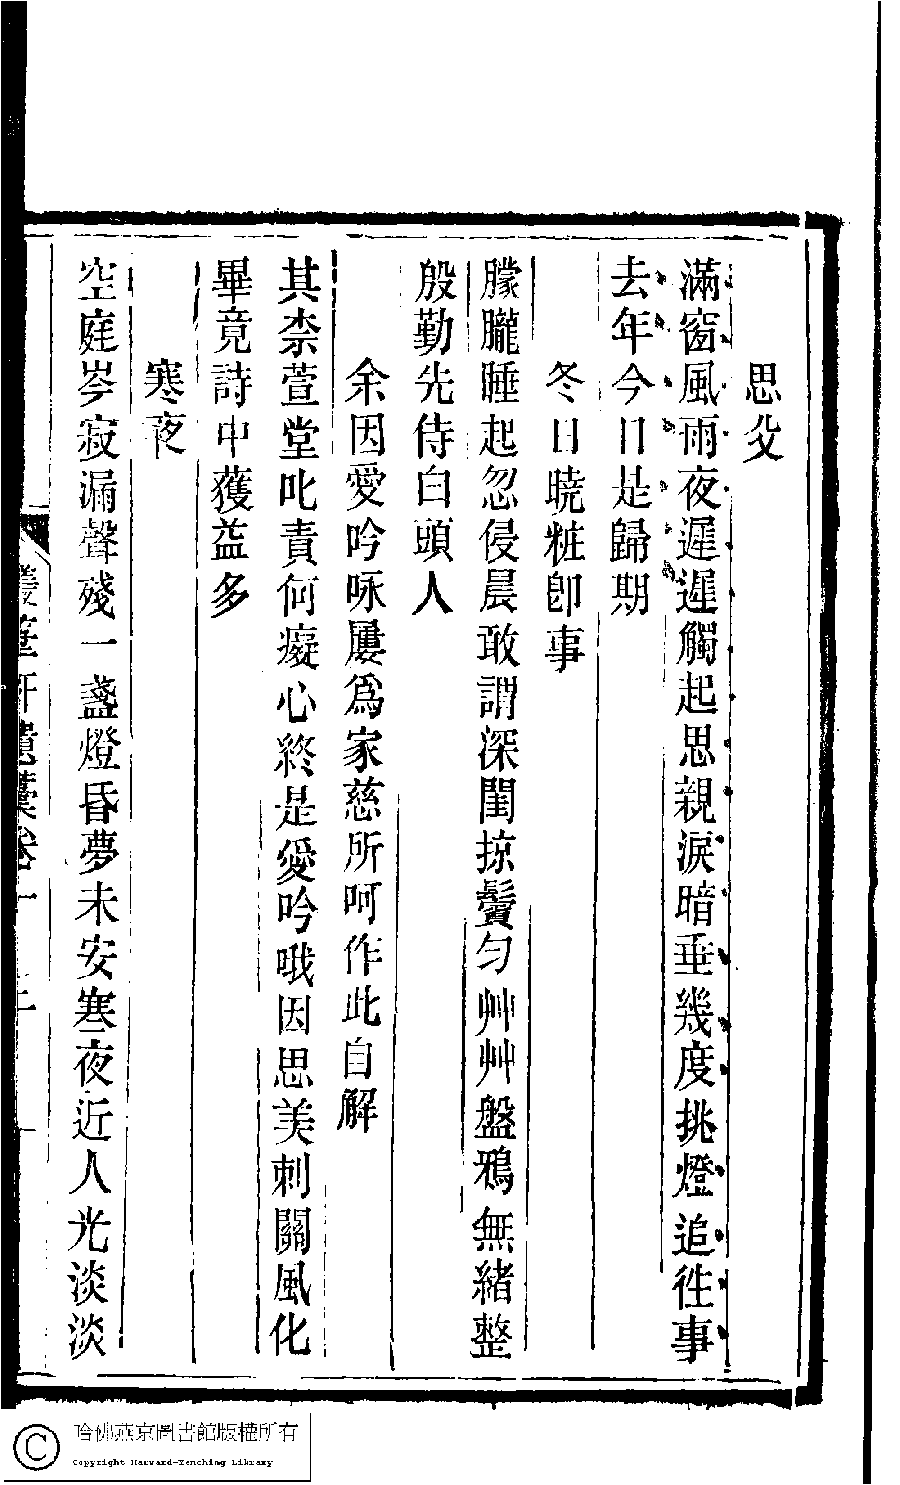 思父
滿窗風雨夜遲遲觸起思親淚暗垂幾度挑燈追徃事
去年今日是歸期
冬日曉粧卽事
朦朧睡起忽侵晨敢謂深閨掠鬢勻艸艸盤鴉無緒整
殷勤先侍白頭人
余因愛吟咏屢爲家慈所呵作此自解
其柰萱堂叱責何癡心終是愛吟哦因思美刺關風化
畢竟詩中獲益多
寒夜
空庭岑寂漏聲殘一盞燈昏夢未安寒夜近人光淡淡
軒遺稾卷十
哈佛燕京圖書館版權所有
Copyright Harvard-Yenching Library